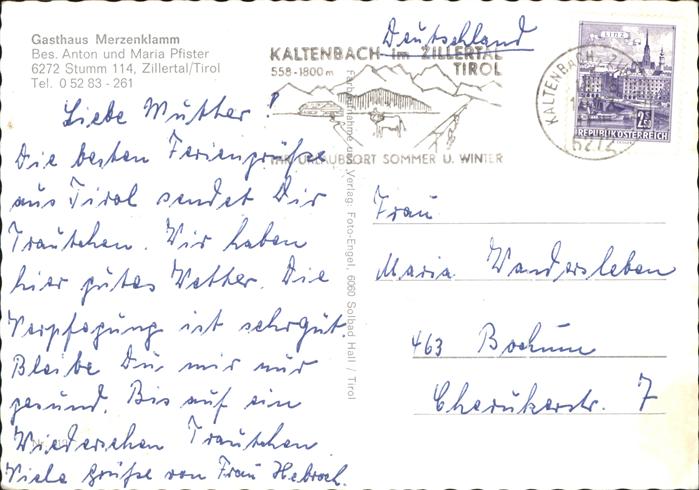 Gasthaus Merzenklamm
Bes. Anton und Maria Pfister
6272 Stumm 114, Zillertal/Tirol
Tel. 0 52 83 - 261
Liebe Mutter!
Die besten Feriengrüße
aus Tirol sendet Dir
Trautchen. Wir haben
hier gutes Wetter. Die
Verpflegung ist sehr gut.
Bleibe Du mir nur
gesund. Bis auf ein
Wiedersehen Trautchen
Viele Grüße von Frau Hebroch.
Verlag: Foto-Engel, 6060 Solbad Hall / Tirol
Deutschland
KALTENBACH im ZILLERTAL
558-1800 m TIROL
IHR URLAUBSORT SOMMER U. WINTER
KALTENBACH
6272
LINZ
2.50
REPUBLIK ÖSTERREICH
Frau
Maria Wandersleben
463 Bochum
Cheruskerstr. 7